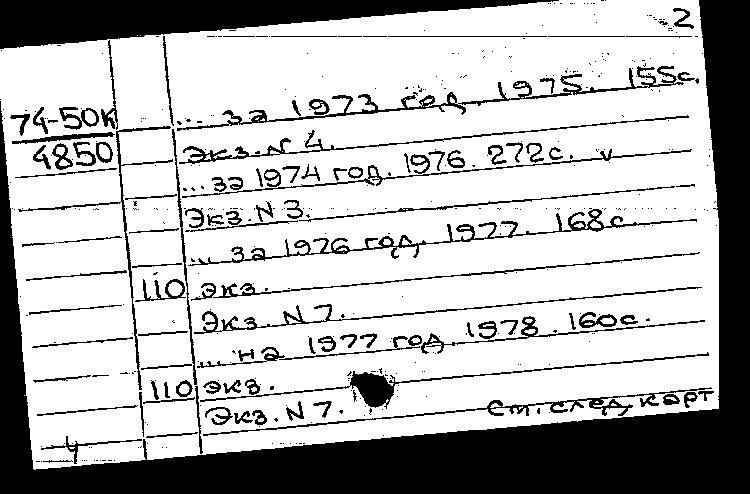 2
74-50К ... за 1973 год. 1975. 155с.
4850 Экз. N 4.
... за 1974 год. 1976. 272с. v
Экз. N 3.
... за 1976 год. 1977. 168с.
110 экз.
Экз. N 7.
... на 1977 год. 1978. 160с.
110 экз.
Экз. N 7. См. след. карт
4